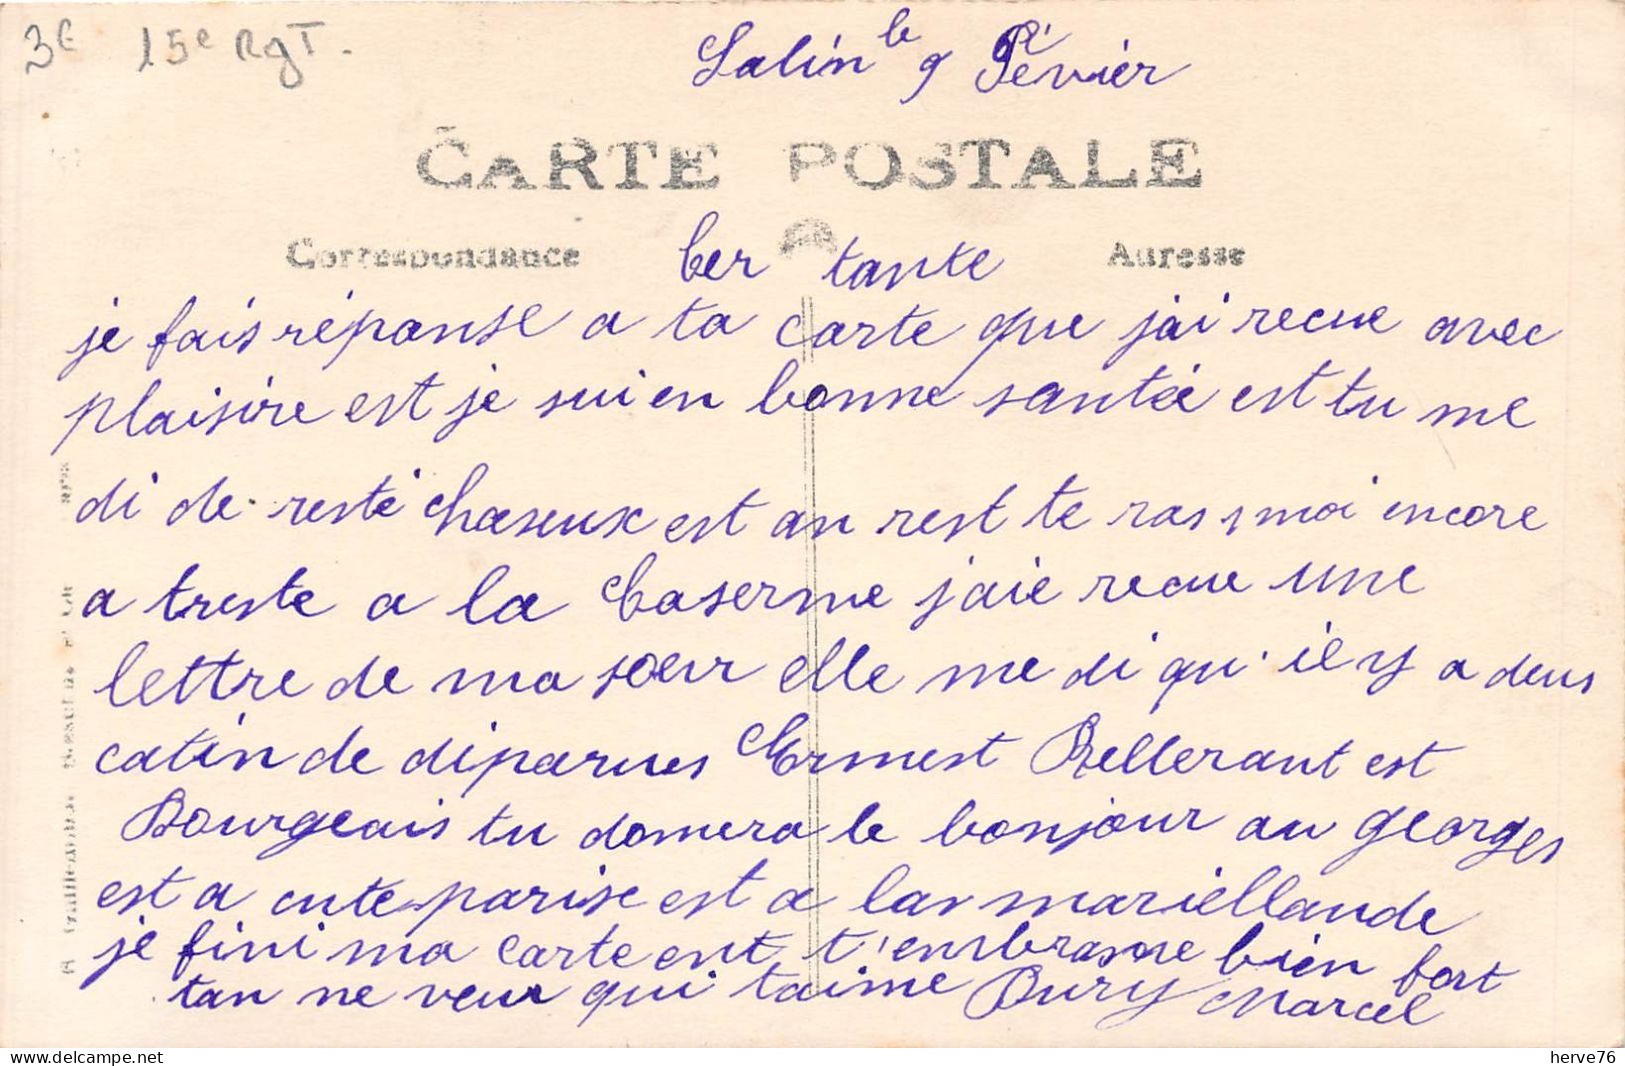 3e 15e RgT.
Salin le 9 Févier
CARTE POSTALE
Correspondance
Adresse
Cer tante
je fais répanse a ta carte que j'ai recue avec
plaisire est je sui en bonne santée est tu me
di de resté est an rest te ras moi encore
a treste a la Caserme jaie recue une
lettre de ma soeur elle me di qu'il y a deus
catin de diparues Ernest Rellerant est
Bourgeais tu domera le bonjour au georges
est a parise est a las mariellande
je fini ma carte ent t'embrasse bien fort
tan ne veux qui t'aime Bury Marcel
herve76